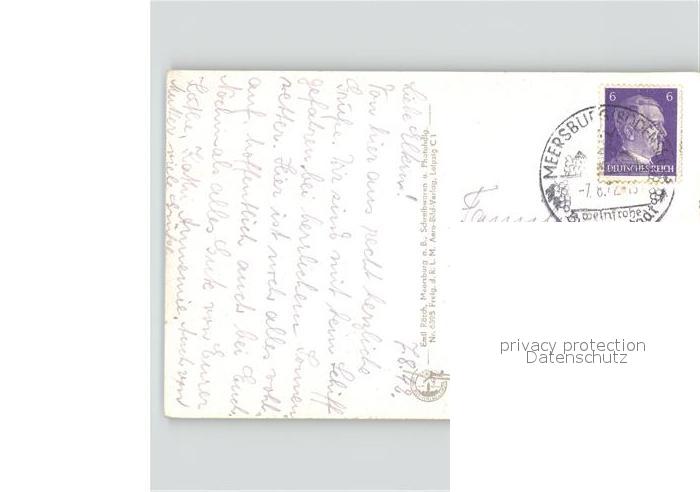 Liebe Eltern! 7.8.42.
Von hier aus recht herzliche
Grüße. Wir sind mit dem Schiff
gefahren bei herrlichem Sonnen-
wetter. Hier ist noch alles voll,
auf hoffentlich auch bei Euch.
Nochmals alles Gute von Eurer
Mutter viele Grüße
Emil Rösch, Meersburg a. B., Schreibwaren u. Photohdlg.
Nr. 6395 Freig. d. R. L. M. Aero-Bild-Verlag, Leipzig C 1
6 6
DEUTSCHES REICH
MEERSBURG (BODENSEE)
-7.8.42
weinfrohe
Famil
privacy protection
Datenschutz